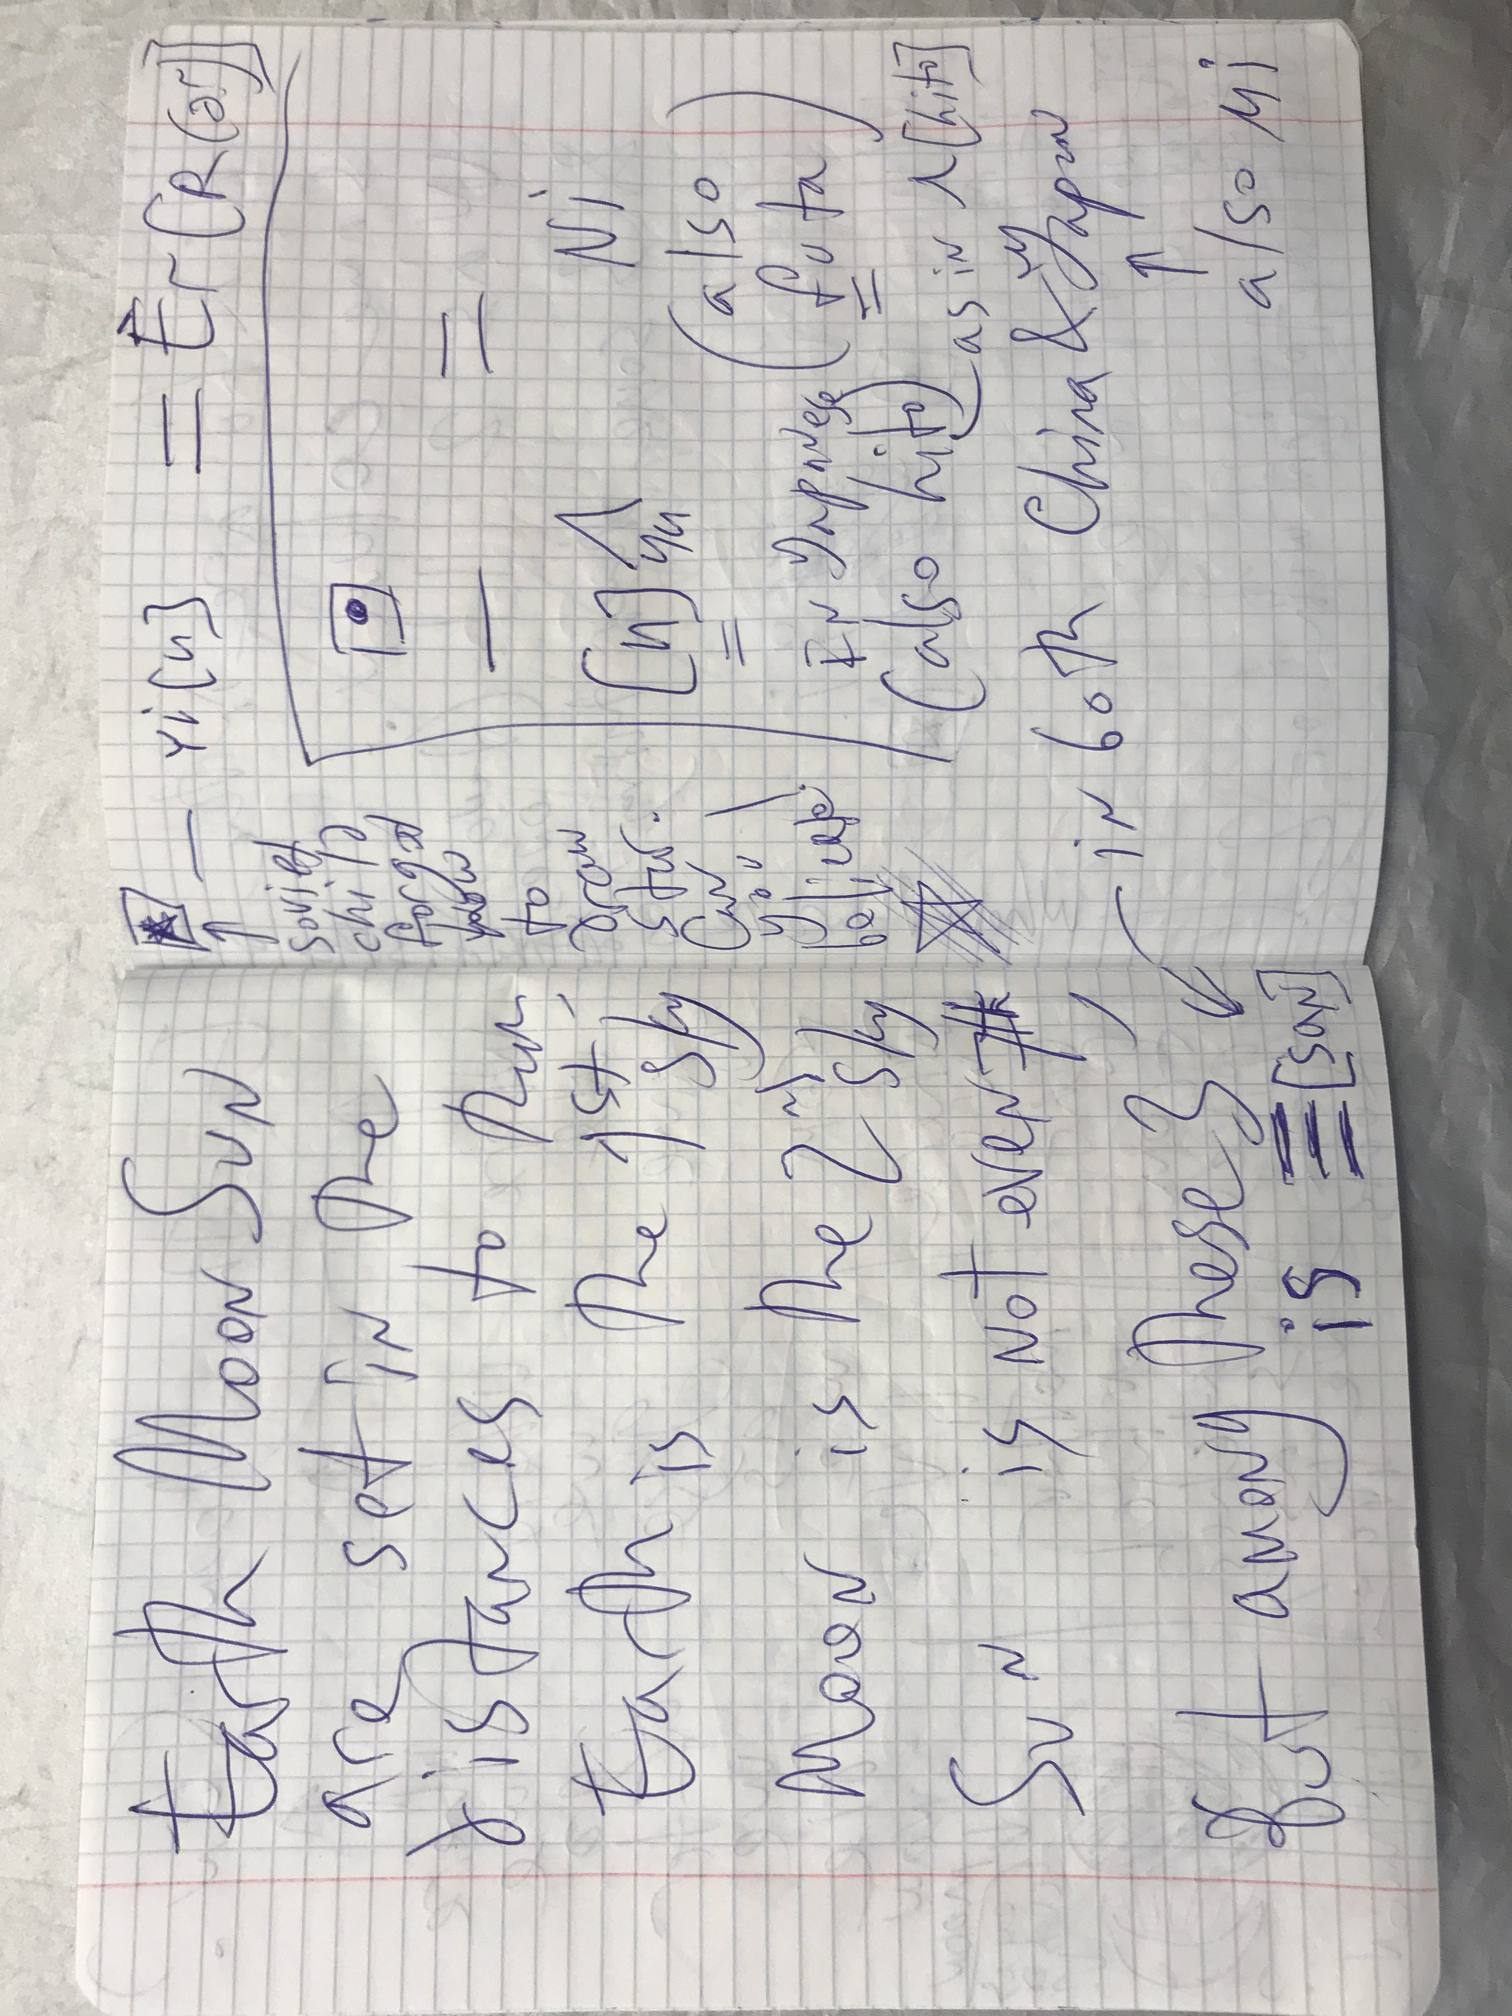 Earth Moon Sun
are set in the
distances to Num
Earth is the 1st sky
Moon is the 2nd sky
Sun is not even #,
but among these 3
is 三 [san]
一 Yi[n] = Er(R(ər)]
↑
soviet
chip
forgot
how
to
draw
star.
Can
you
believe
• 
一 二
[n] Ni
= (also
In Japanese (futa)
(also hito) as in 1[hito]
in both China & Japan
↑
also Mi